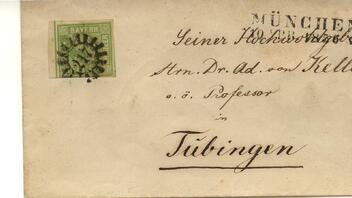 BAYERN
MÜNCHEN
Seiner Hochwohlgeb
Hrn. Dr. Ad. von Kell
o. ö. Professor
in
Tübingen